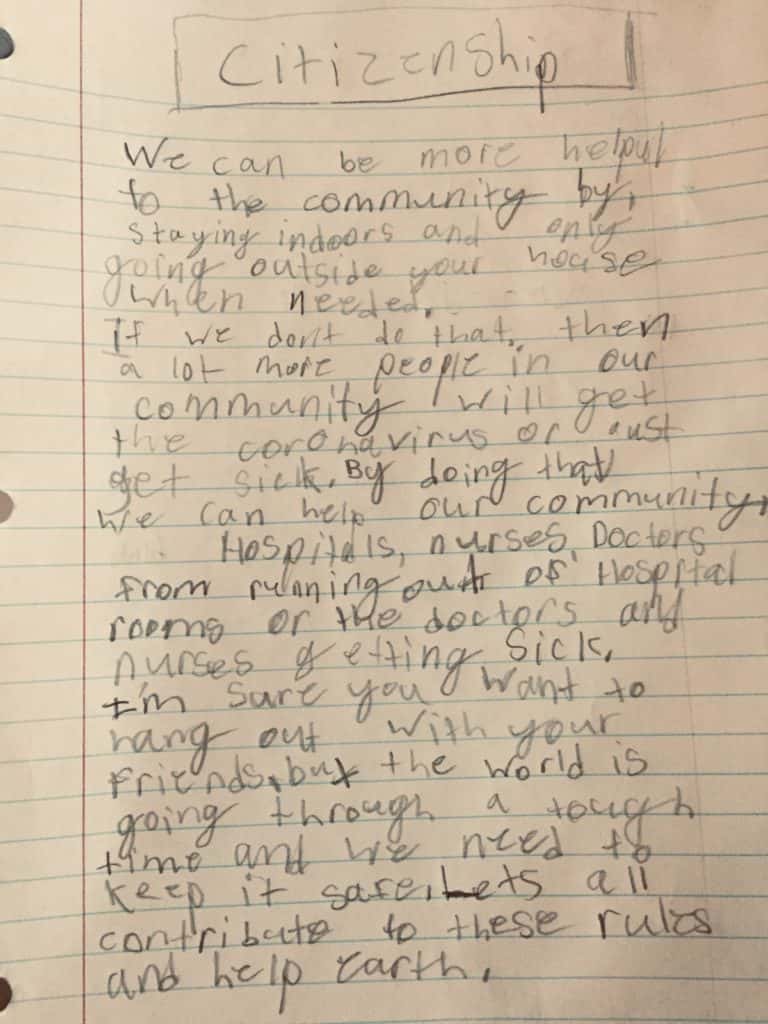 Citizenship
We can be more helpul
to the community by,
staying indoors and only
going outside your house
when needed.
If we don't do that, then
a lot more people in our
community will get
the coronavirus or just
get sick. By doing that
we can help our community,
Hospitals, nurses, Doctors
from running out of Hospital
rooms or the doctors and
nurses getting sick.
I'm sure you want to
hang out with your
friends, but the world is
going through a tough
time and we need to
keep it safe. Lets all
contribute to these rules
and help earth.